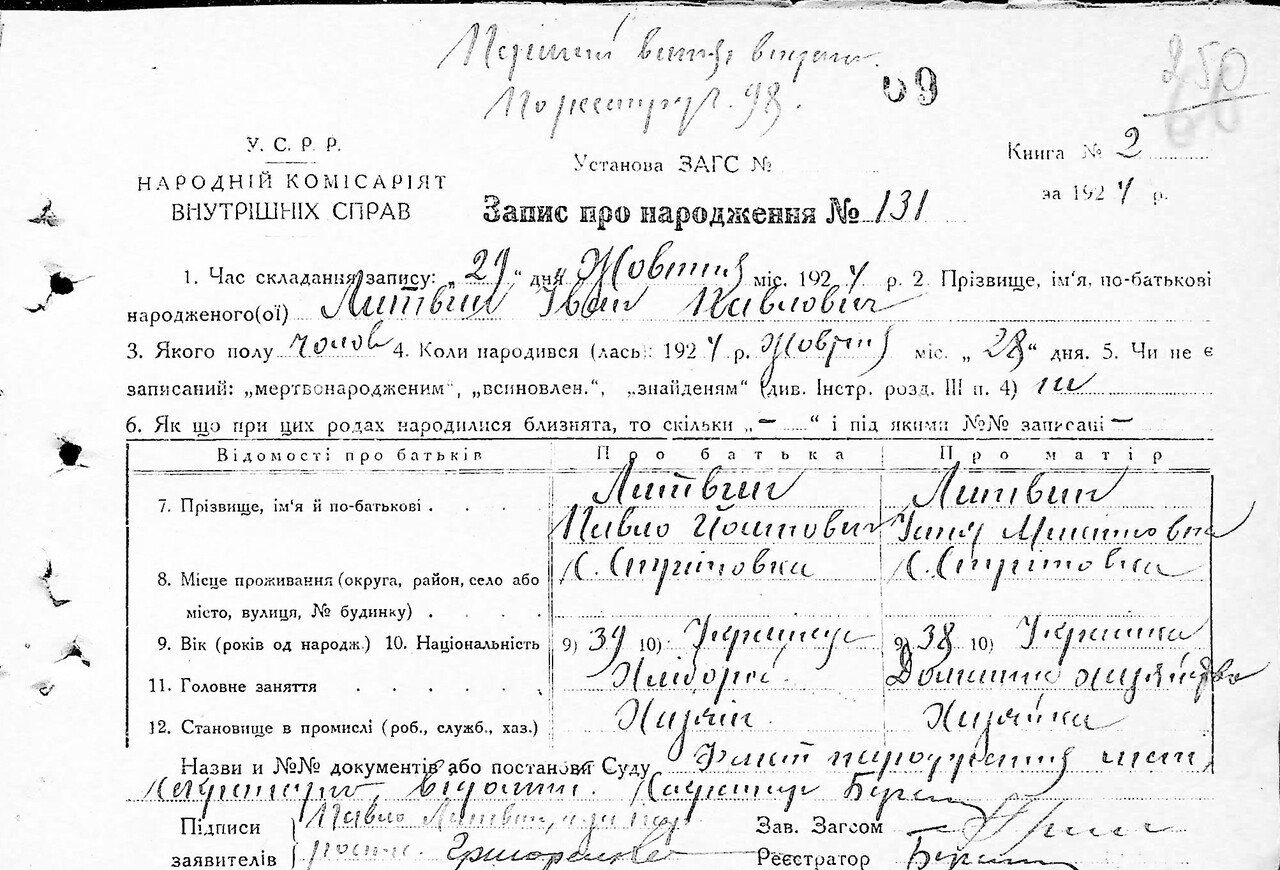 По реєстру № 98.
69
250
У. С. Р. Р.
НАРОДНІЙ КОМІСАРІЯТ
ВНУТРІШНІХ СПРАВ
Установа ЗАГС №
Книга № 2
за 1924 р.
Запис про народження № 131
1. Час складання запису: „29“ дня Жовтня міс. 1924 р. 2. Прізвище, ім'я, по-батькові
народженого(ої) Литвин Іван Павлович
3. Якого полу чолов 4. Коли народився (лась): 1924 р. Жовтня міс. „28“ дня. 5. Чи не є
записаний: „мертвонародженим“, „всиновлен.“, „знайденям“ (див. Інстр. розд. III п. 4) ні
6. Як що при цих родах народилися близнята, то скільки „—“ і під якими №№ записані —
Відомості про батьків Про батька Про матір
7. Прізвище, ім'я й по-батькові Литвин Литвин
Павло Йосипович Микитовна
8. Місце проживання (округа, район, село або с. Стрітовка с. Стрітовка
місто, вулиця, № будинку)
9. Вік (років од народж.) 10. Національність 9) 39 10) Українець 9) 38 10) Українка
11. Головне заняття Хлібороб Домашнє хазяйство
12. Становище в промислі (роб., служб., хаз.) Хазяїн Хазяйка
Назви и №№ документів або постанови Суду Факт народження
Підписи Павло Литвин
заявителів
Зав. Загсом
Реєстратор